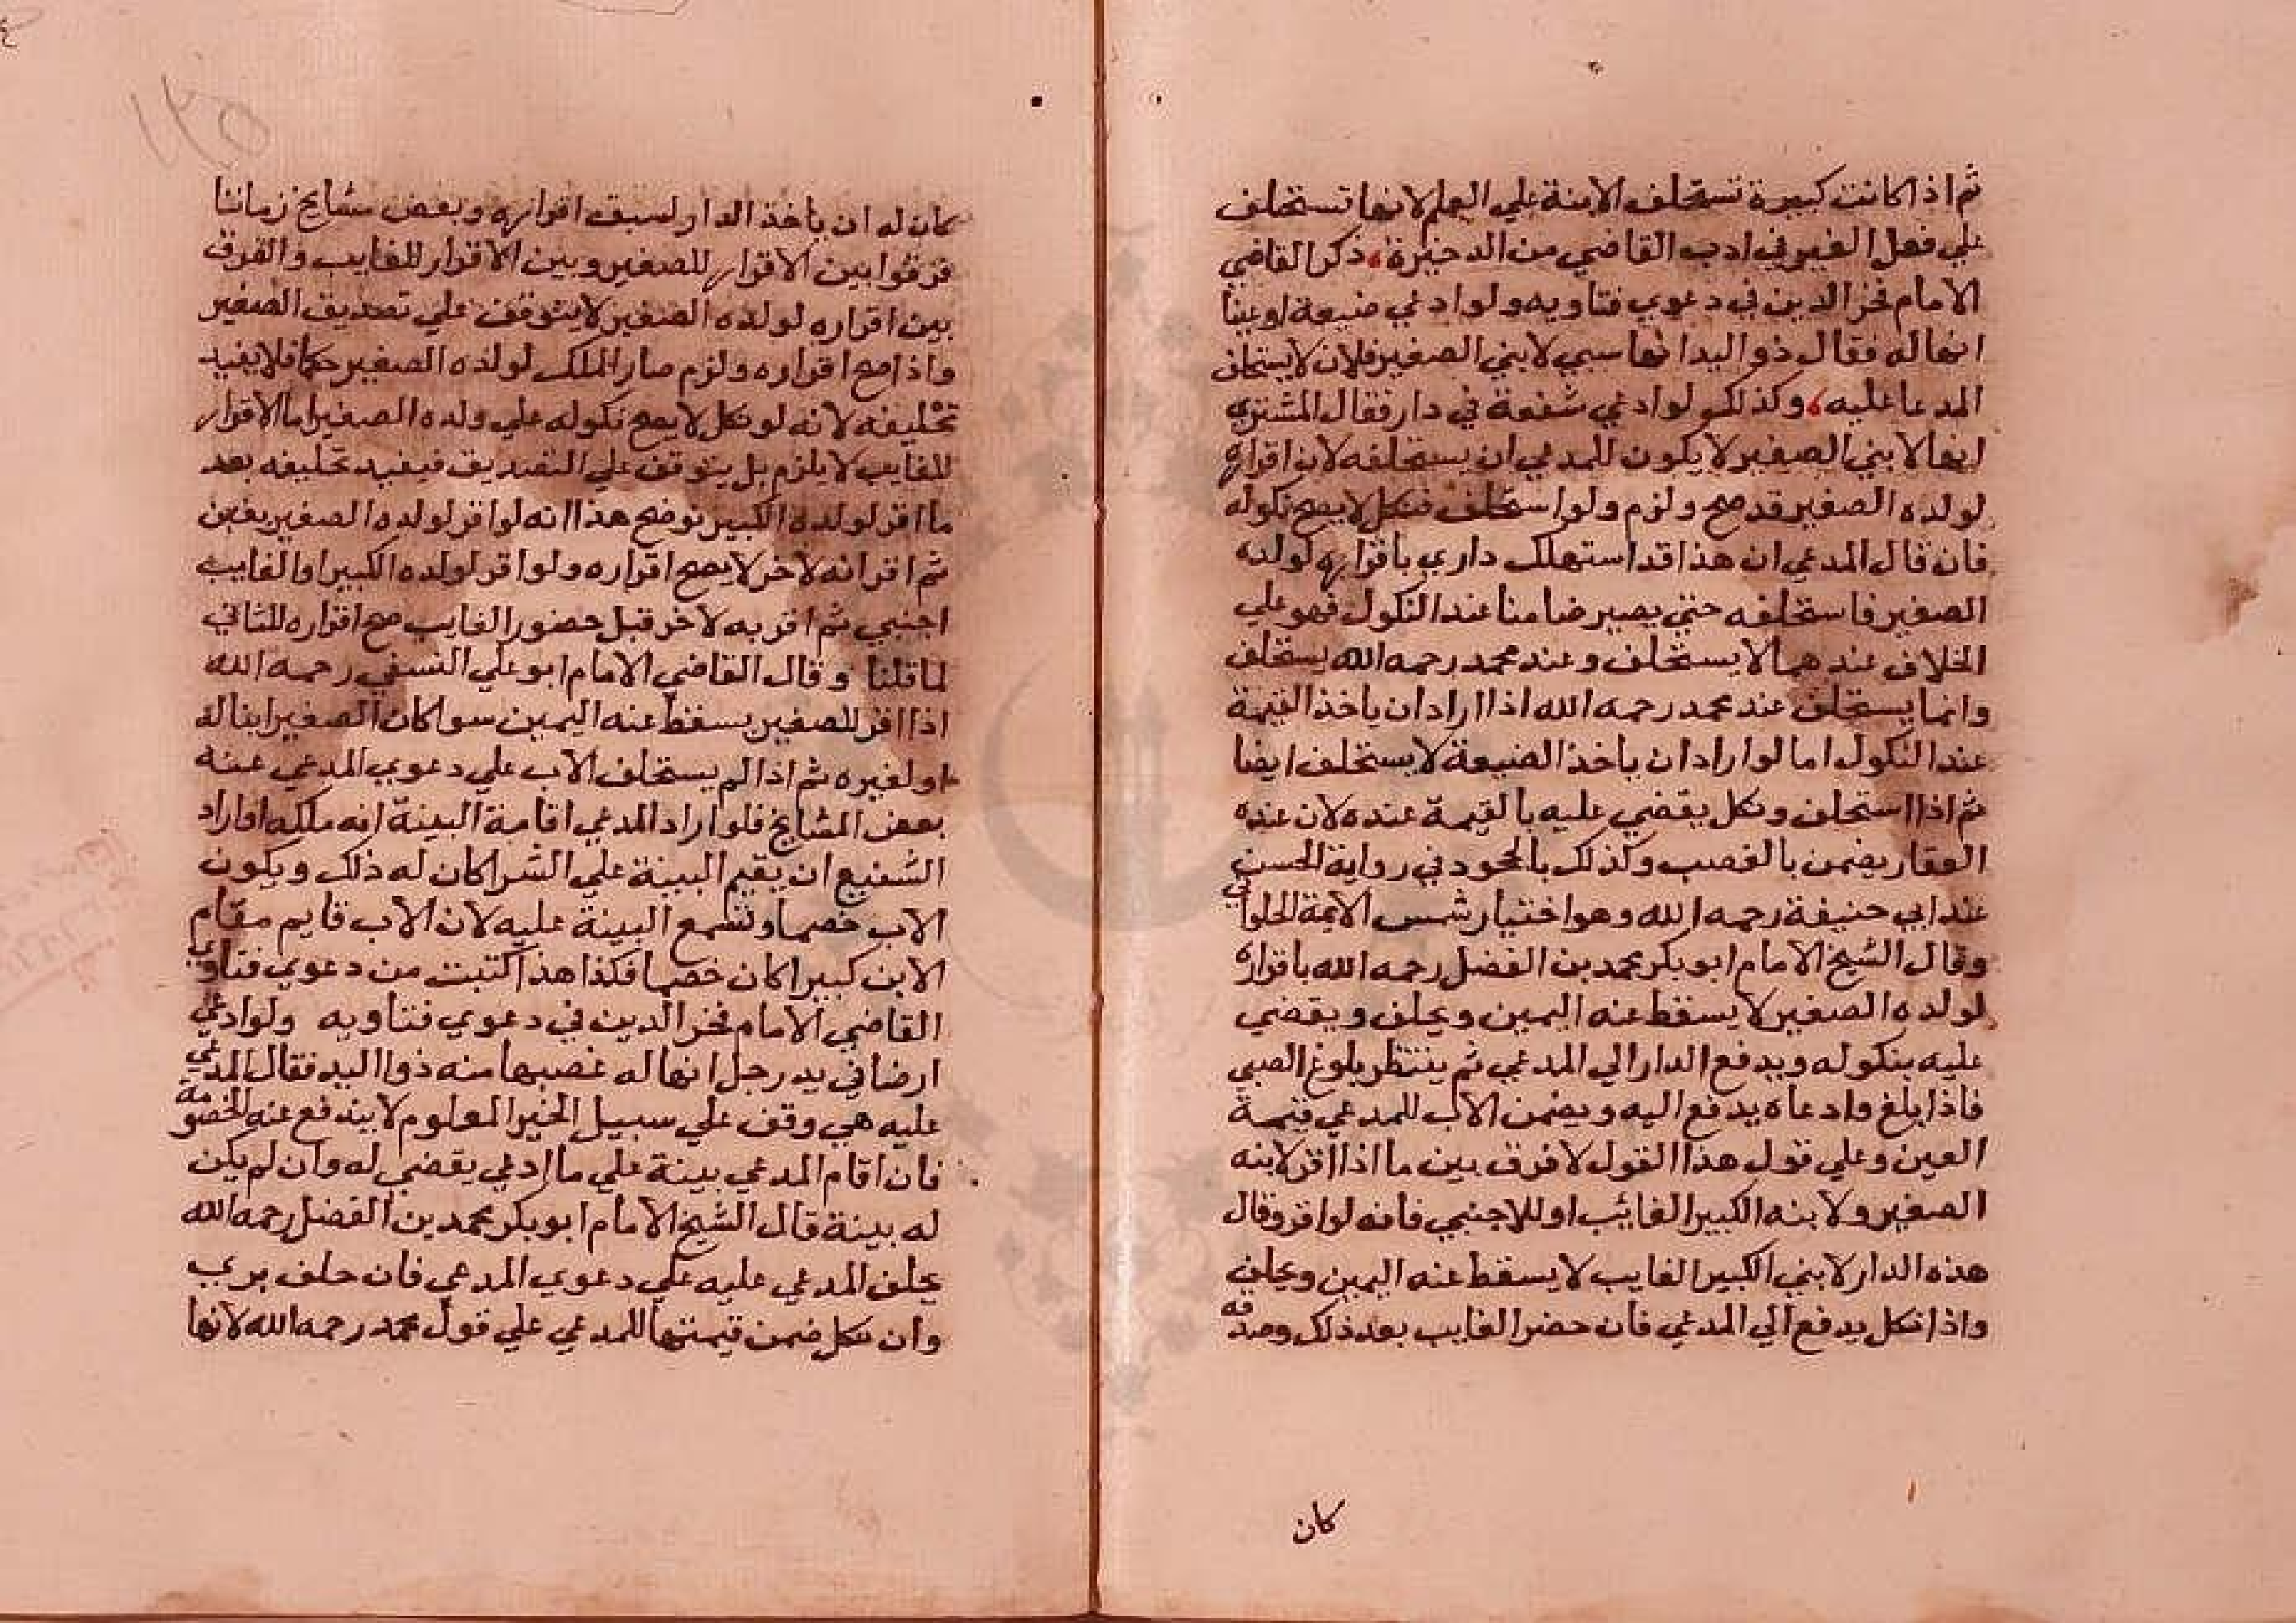 ثم اذا كانت كبيرة تستحلف الابنة علي العلم لانها تستحلف
علي فعل الغير في ادب القاضي من الدخيرة، ذكر القاضي
الامام فخر الدين في دعوي فتاويه ولو ادعي ضيعة او عينا
انها له فقال ذو اليد انها سبي لابني الصغير فلان لا يستحلف
المدعا عليه، وكذلك لو ادعي شفعة في دار فقال المشتري
انها لابني الصغير لا يكون للمدعي ان يستحلفه لان اقراره
لولده الصغير قد صح ولزم ولو استحلف فنكل لا يصح نكوله
فان قال المدعي ان هذا قد استهلك داري باقراره لولده
الصغير فاستحلفه حتي يصير ضامنا عند النكول فهو علي
الخلاف عندهما لا يستحلف وعند محمد رحمه الله يستحلف
وانما يستحلف عند محمد رحمه الله اذا اراد ان ياخذ القيمة
عند النكول اما لو اراد ان ياخذ الضيعة لا يستحلف ايضا
ثم اذا استحلف ونكل يقضي عليه بالقيمة عنده لان عنده
العقار يضمن بالغصب وكذلك بالجحود في رواية الحسن
عند ابي حنيفة رحمه الله وهو اختيار شمس الايمة الحلواني
وقال الشيخ الامام ابو بكر محمد بن الفضل رحمه الله باقراره
لولده الصغير لا يسقط عنه اليمين ويحلف ويقضي
عليه بنكوله ويدفع الدار الي المدعي ثم ينتظر بلوغ الصبي
فاذا بلغ وادعاه يدفع اليه ويضمن الاب للمدعي قيمة
العين وعلي قول هذا القول لا فرق بين ما اذا اقر لابنه
الصغير ولابنه الكبير الغائب او للاجنبي فانه لو اقر وقال
هذه الدار لابني الكبير الغايب لا يسقط عنه اليمين ويحلف
واذا نكل يدفع الي المدعي فان حضر الغايب بعد ذلك وصدقه
كان
كان له ان ياخذ الدار لسبق اقراره وبعض مشايخ زماننا
فرقوا بين الاقرار للصغير وبين الاقرار للغايب والفرق
بين اقراره لولده الصغير لا يتوقف علي تصديق الصغير
واذا صح اقراره ولزم صار الملك لولده الصغير حكما فلا يفيد
تحليفه لانه لو نكل لا يصح نكوله علي ولده الصغير اما الاقرار
للغايب لا يلزم بل يتوقف علي التصديق فيفيد تحليفه بعد
ما اقر لولده الكبير توضح هذا انه لو اقر لولده الصغير بعين
ثم اقر انه لاخر لا يصح اقراره ولو اقر لولده الكبير او الغايب
اجنبي ثم اقر به لاخر قبل حضور الغايب صح اقراره للثاني
لما قلنا وقال القاضي الامام ابو علي النسفي رحمه الله
اذا اقر للصغير يسقط عنه اليمين سوا كان الصغير ابنا له
او لغيره ثم اذا لم يستحلف الاب علي دعوي المدعي عند
بعض المشايخ فلو اراد المدعي اقامة البينة انه ملكه او اراد
الشفيع ان يقيم البينة علي الشرا كان له ذلك ويكون
الاب خصما وتسمع البينة عليه لان الاب قايم مقام
الابن كبيرا كان خصما فكذا هذا كتبت من دعوي فتاوي
القاضي الامام فخر الدين في دعوي فتاويه ولو ادعي
ارضا في يد رجل انها له غصبها منه ذو اليد فقال المدعي
عليه هي وقف علي سبيل الخير المعلوم لا يندفع عنه الخصومة
فان اقام المدعي بينة علي ما ادعي يقضي له وان لم يكن
له بينة قال الشيخ الامام ابو بكر محمد بن الفضل رحمه الله
يحلف المدعي عليه علي دعوي المدعي فان حلف بري
وان نكل ضمن قيمتها للمدعي علي قول محمد رحمه الله لانها